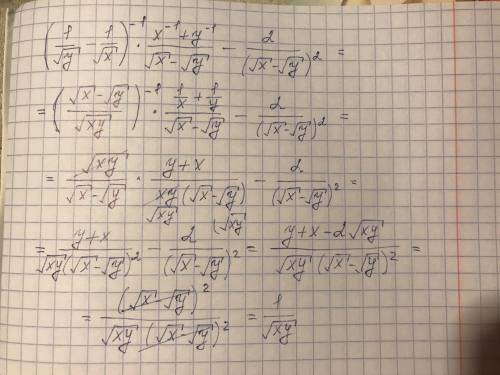 (1/√y - 1/√x)^-1 · (x^-1 + y^-1)/(√x - √y) - 2/(√x - √y)^2 =
= ((√x - √y)/√xy)^-1 · (1/x + 1/y)/(√x - √y) - 2/(√x - √y)^2 =
= √xy/(√x - √y) · (y + x)/(xy (√x - √y)) - 2/(√x - √y)^2 =
√xy (√xy
= (y + x)/(√xy (√x - √y)^2) - 2/(√x - √y)^2 = (y + x - 2√xy)/(√xy (√x - √y)^2) =
= (√x - √y)^2/(√xy (√x - √y)^2) = 1/√xy